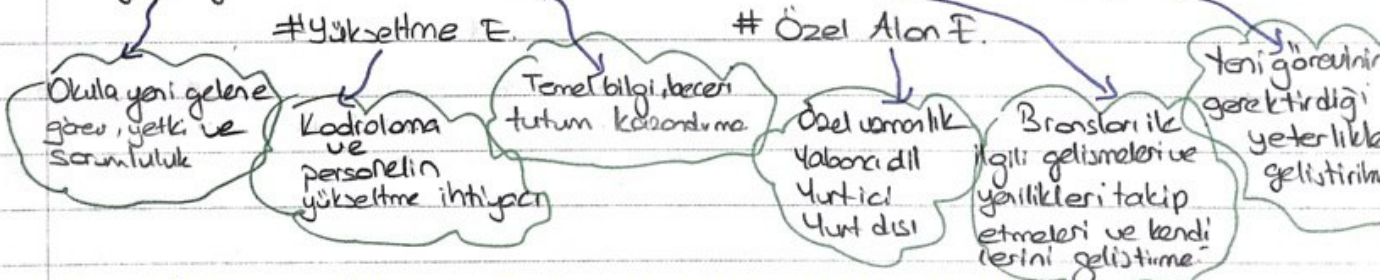 #Yükseltme E.
# Özel Alan E.
Okula yeni gelene
görev, yetki ve
sorumluluk
Kadrolama
ve
personelin
yükseltme ihtiyacı
Temel bilgi, beceri
tutum kazandırma
Özel uzmanlık
Yabancı dil
Yurtiçi
Yurt dışı
Branşları ile
ilgili gelişmeleri ve
yenilikleri takip
etmeleri ve kendi
lerini geliştirme
Yeni görevinin
gerektirdiği
yeterlikle
geliştirilm